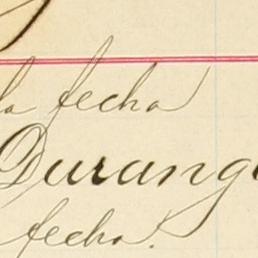 la fecha
Durango
fecha.